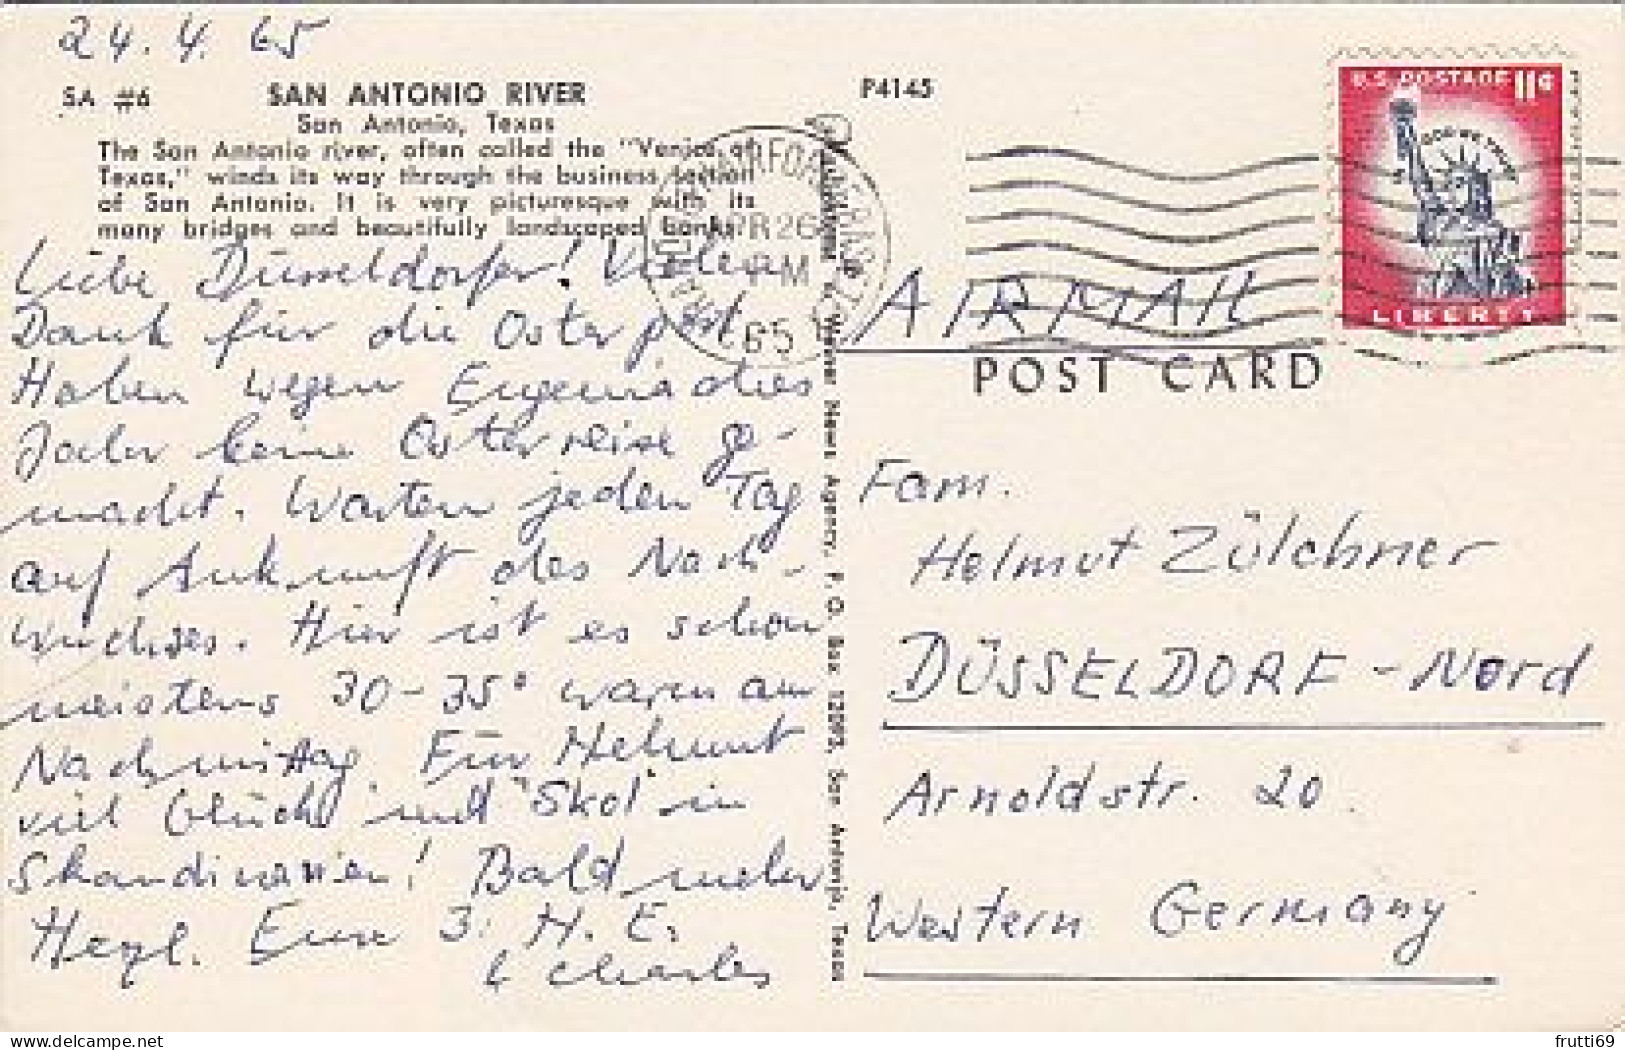 24. 4. 65
SA #6
SAN ANTONIO RIVER
San Antonio, Texas
The San Antonio river, often called the "Venice of
Texas," winds its way through the business section
of San Antonio. It is very picturesque with its
many bridges and beautifully landscaped banks.
Liebe Düsseldorfer! Vielen
Dank für die Osterpost.
Haben wegen Eugenia dies
Jahr keine Osterreise ge-
macht. Warten jeden Tag
auf Ankunft des Nach-
wuchses. Hier ist es schon
meistens 30-35° warm am
Nachmittag. Für Helmut
viel Glück und "Skol" in
Skandinavien! Bald mehr
Herzl. Eure 3. H. E.
& Charles
P4145
Weiner News Agency, P. O. Box 12095, San Antonio, Texas
APR 26
PM
65
U.S. POSTAGE 11¢
IN GOD WE TRUST
LIBERTY
AIRMAIL
POST CARD
Fam.
Helmut Zülchner
DÜSSELDORF - Nord
Arnoldstr. 20.
Western Germany
frutti69